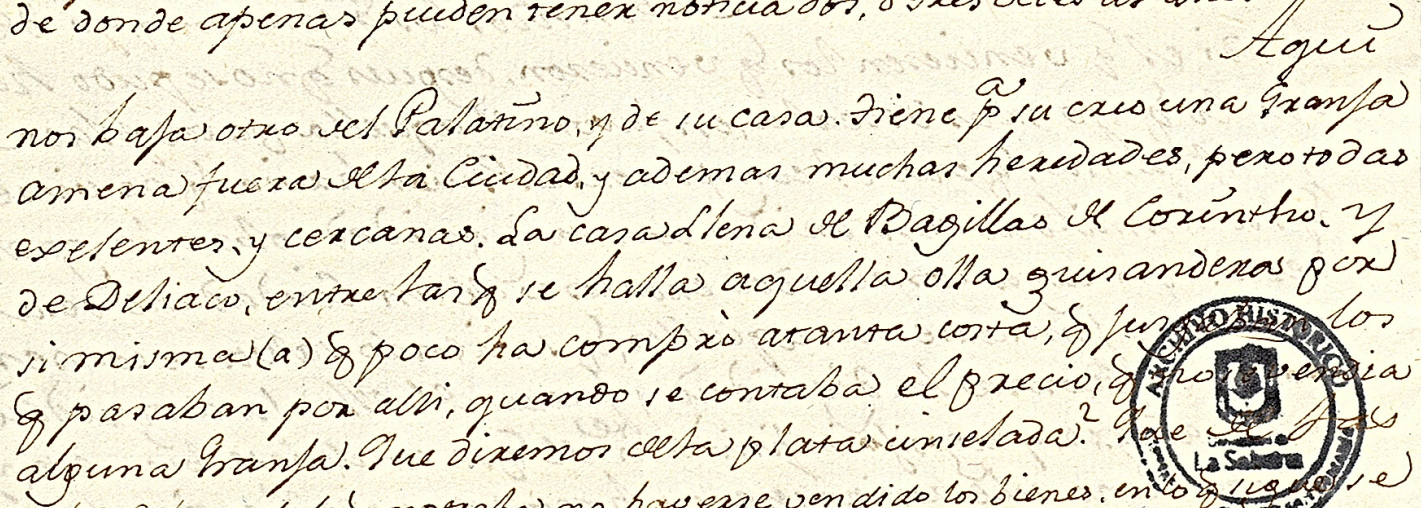 de donde apenas pueden tener noticia dos, o tres veces
Aqui
nos baja otro del Palatino, y de su casa. Tiene pa su creo una Granja
amena fuera dela Ciudad, y ademas muchas heredades, pero todas
exelentes, y cercanas. La casa llena de Bagillas de Corintho, y
de Deliaco, entre las q se halla aquella olla guisandera por
si misma (a) q poco ha comprò atanta costa, q los
q pasaban por alli, quando se contaba el precio, q no vendia
alguna Granja. Que diremos dela plata cinselada? Que
no haverse vendido los bienes, en lo q se
ARCHIVO HISTORICO
La Sabana